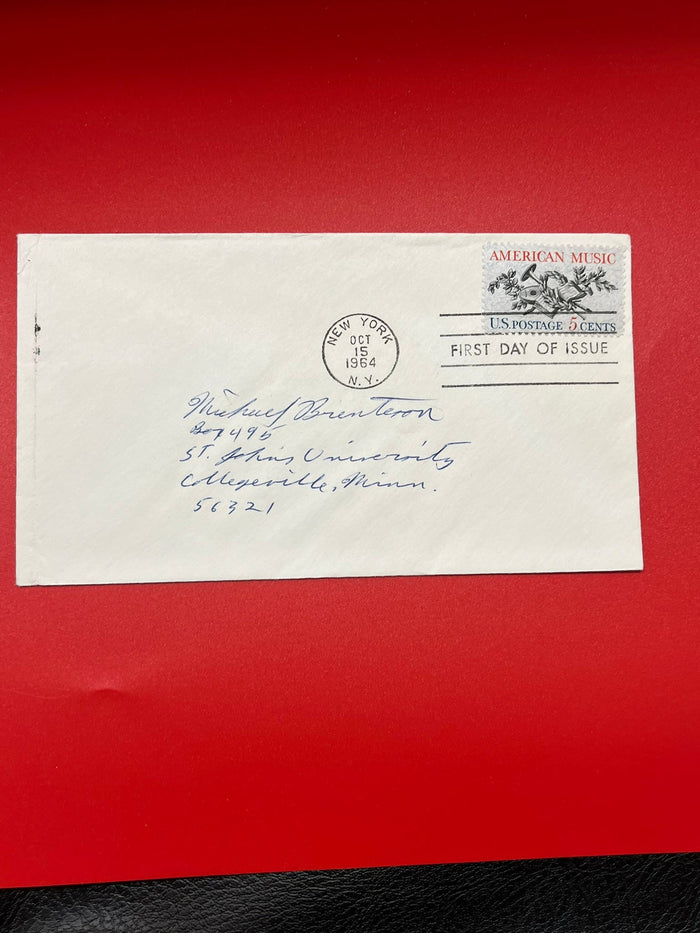 AMERICAN MUSIC
U.S. POSTAGE 5 CENTS
NEW YORK
OCT
15
1964
N.Y.
FIRST DAY OF ISSUE
Michael Brenteson
Box 495
St. Johns University
Collegeville, Minn.
56321